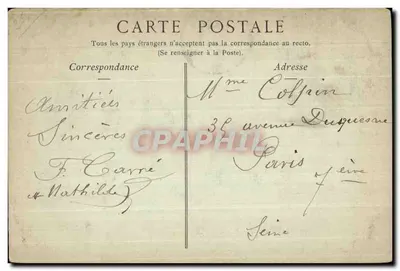 CARTE POSTALE
Tous les pays étrangers n'acceptent pas la correspondance au recto.
(Se renseigner à la Poste).
Correspondance
Adresse
Amitiés
Sincères
F. Carré
& Mathilde
Mme Colpin
avenue Duquesne
Paris
7ème
Seine
CPAPHIL